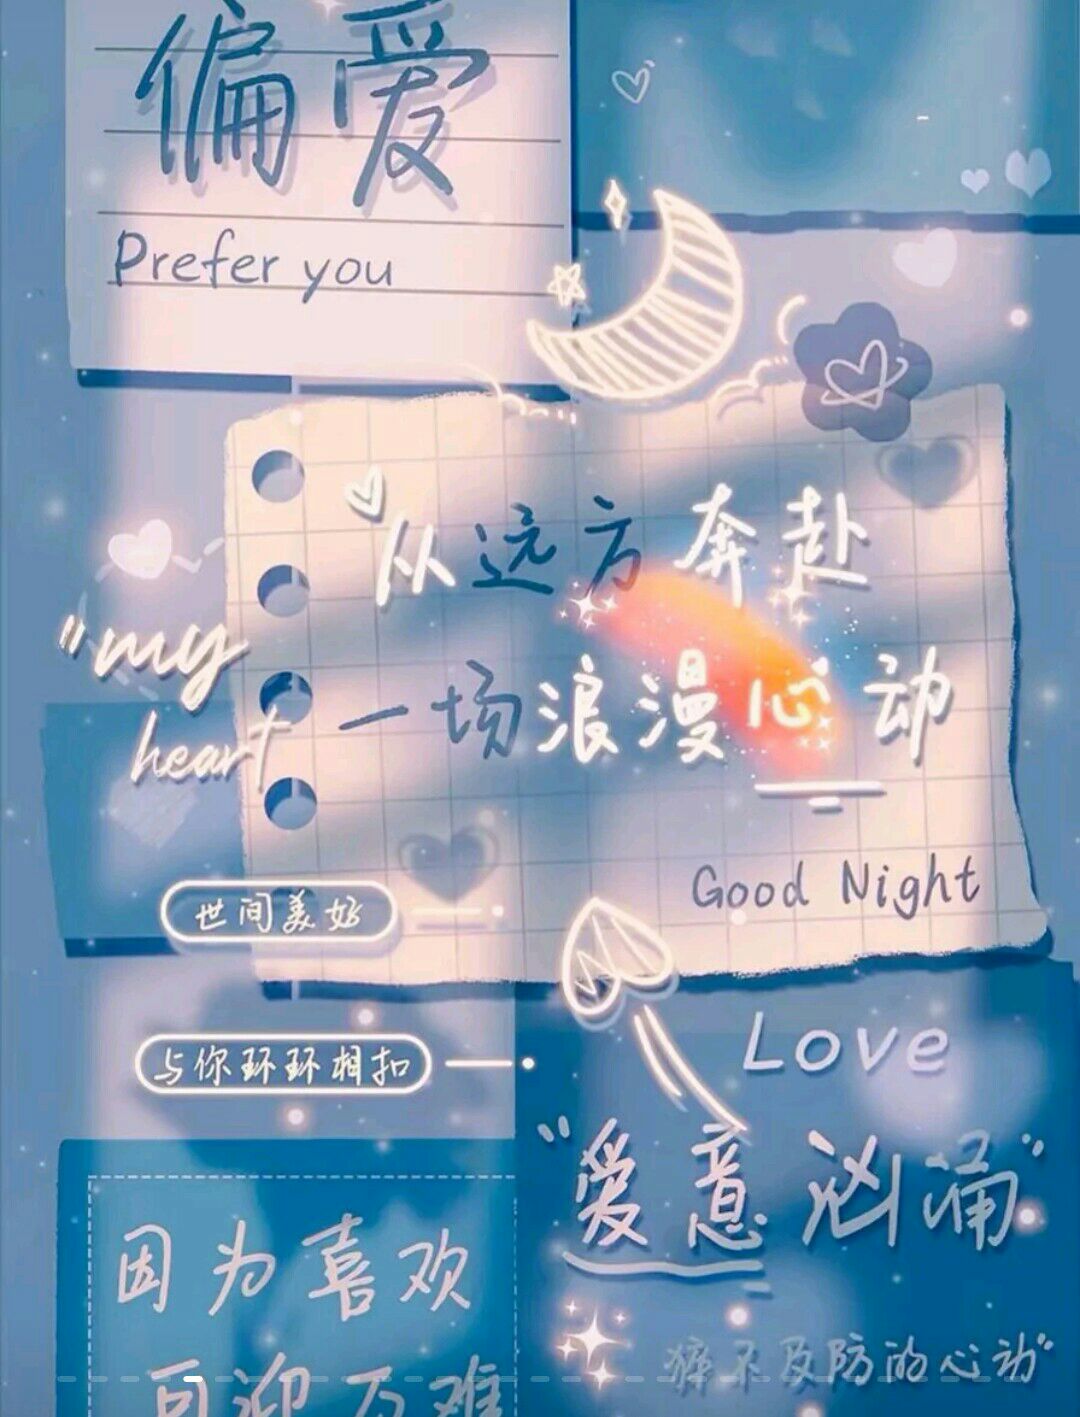 偏爱
Prefer you
从远方奔赴
一场浪漫心动
"my
heart
Good Night
世间美好
与你环环相扣
Love
"爱意汹涌"
因为喜欢
可迎万难
猝不及防的心动"